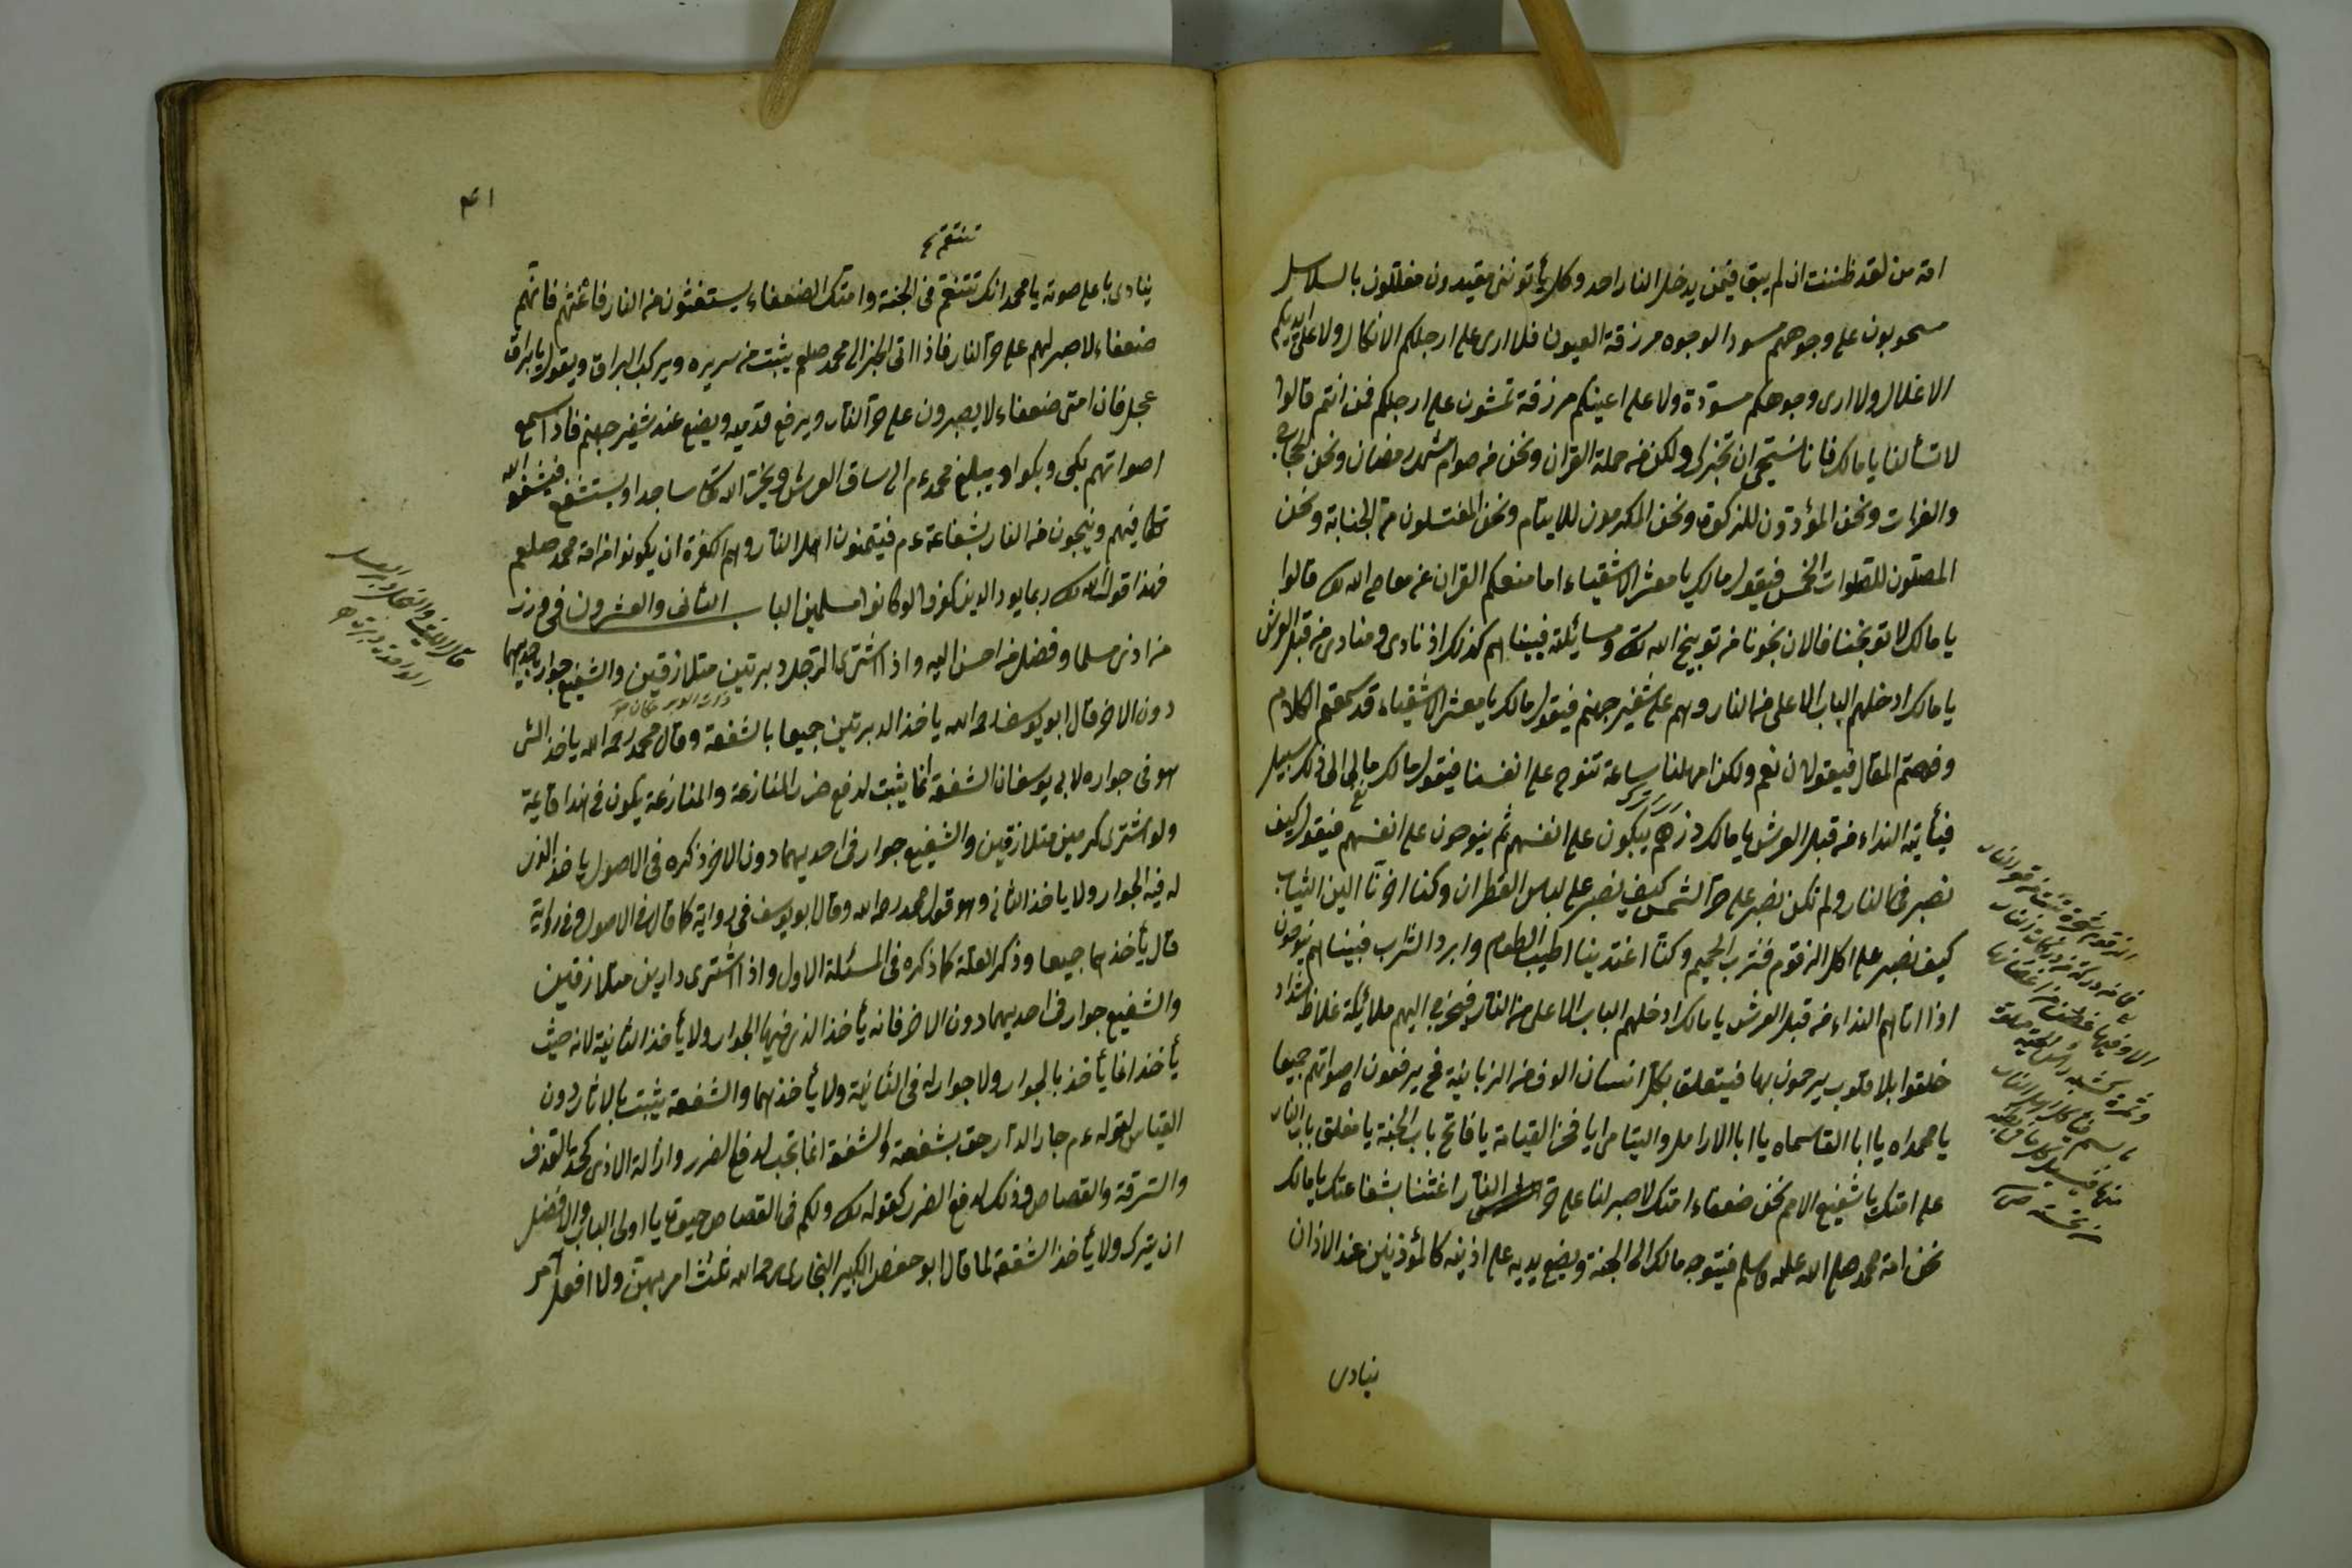 امة من لقد ظننت ان لم يبق فيمن يدخل النار احد وكل يأتونني مقيدون مغللون بالسلاسل
مسحوبون على وجوههم مسود الوجوه مزرقة العيون فلا ارى على ارجلكم الانكال ولا على ايديكم
الاغلال ولا ارى وجوهكم مسودة ولا على اعينكم مزرقة تمشون على ارجلكم فمن انتم قالوا
لا تسألنا يا مالك فانا نستحي ان نخبرك ولكن من حملة القران ونحن من صوام شهر رمضان ونحن الحجاج
والغزات ونحن المؤدون للزكوة ونحن المكرمون للايتام ونحن المغتسلون من الجنابة ونحن
المصلون للصلوات الخمس فيقول مالك يا معشر الاشقياء اما منعكم القران عن معاصى الله تع قالوا
يا مالك لا توبخنا فالان نجونا من توبيخ الله تع ومسائلة فبيناهم كذلك اذ نادى منادى من قبل العرش
يا مالك ادخلهم الباب الاعلى من النار وهم على شفير جهنم فيقول مالك يا معشر الاشقياء قد سمعتم الكلام
وفهمتم المقال فيقولون نعم ولكن امهلنا ساعة ننوح على انفسنا فيقول مالك مالى الى ذلك سبيل
فيأتيه النداء من قبل العرش يا مالك ذرهم يبكون على انفسهم ثم ينوحون على انفسهم فيقول كيف
نصبر فى النار ولم نكن نصبر على حر الشمس كيف نصبر على لباس القطران وكنا اخرنا الين الثياب
كيف نصبر على اكل الزقوم فشرب الحميم وكنا اغتدينا اطيب الطعام وابرد الشراب فبيناهم ينوحون
اذا اتاهم النداء من قبل العرش يا مالك ادخلهم الباب الاعلى من النار فيخرج اليهم ملائكة غلاظ شداد
خلقوا بلا قلوب يرحمون بها فيتعلق بكل انسان الوف من الزبانية فح يرفعون اصواتهم جميعا
يا محمداه يا ابا القاسماه يا ابا الارامل واليتامى ايا فخر القيامة يا فاتح باب الجنة يا مغلق باب النار
على امتك يا شفيع الامم نحن ضعفاء امتك لا صبر لنا على حر النار اغثنا بشفاعتك يا مالك
نحن امة محمد صلى الله عليه وسلم فيتوجه مالك الى الجنة ويضع يديه على اذنيه كالمؤذنين عند الاذان
ينادى
٤١
ينادى باعلى صوته يا محمد انك تتنعم فى الجنة وامتك الضعفاء يستغثون من النار فاغثهم فانهم
ضعفاء لا صبر لهم على حر النار فاذا اتى الخبر الى محمد صلعم يثبت من سريره ويركب البراق ويقول يا براق
عجل فان امتى ضعفاء لا يصبرون على حر النار ويرفع قدميه ويضع عند شفير جهنم فاذا سمع
اصواتهم بكى وبكوا ويبلغ محمد عم الى ساق العرش ويخر لله تعا ساجدا ويستشفع فيشفعه الله
تعا فيهم وينجون من النار بشفاعة عم فيتمنون اهل النار وهم الكفرة ان يكونوا من امة محمد صلعم
فهذا قوله تع ربما يود الذين كفروا لو كانوا مسلمين الباب الثانى والعشرون فى وزر
من اذى مسلما وفضل من احسن اليه واذا اشترى الرجل دبرتين متلازقين والشفيع جوار باحديهما
دون الاخر قال ابو يوسف رحمه الله ياخذ الدبرتين جميعا بالشفعة وقال محمد رحمه الله ياخذ التى
هو فى جواره لابى يوسف ان الشفعة انما يثبت لدفع ضرر المنازعة والمنازعة يكون فى هذا قايمة
ولو اشترى كرمين متلازقين والشفيع جوار فى احديهما دون الاخر ذكره فى الاصول ياخذ الذى
له فيه الجوار ولا ياخذ الثانى وهو قول محمد رحمه الله وقال ابو يوسف فى رواية كما قال فى الاصول وفى رواية
قال يأخذهما جميعا وذكر العلة كما ذكره فى المسئلة الاول واذا اشترى دارين متلازقين
والشفيع جوار فى احديهما دون الاخر فانه يأخذ الذى فيها الجوار ولا يأخذ الثانية لانه حيث
يأخذ انما يأخذ بالجوار ولا جوار له فى الثانية ولا يأخذهما والشفعة يثبت بالاثار دون
القياس لقوله عم جار الدار حق بشفعة والشفعة انما تجب لدفع الضرر وازالة الاذى كحد القذف
والسرقة والقصاص وذلك لدفع الضرر كقوله تع ولكم فى القصاص حيوة يا اولى الالباب والافضل
ان يترك ولا يأخذ الشفعة لما قال ابو حفص الكبير البخارى رحمه الله ثلث امر بهن ولا افعل